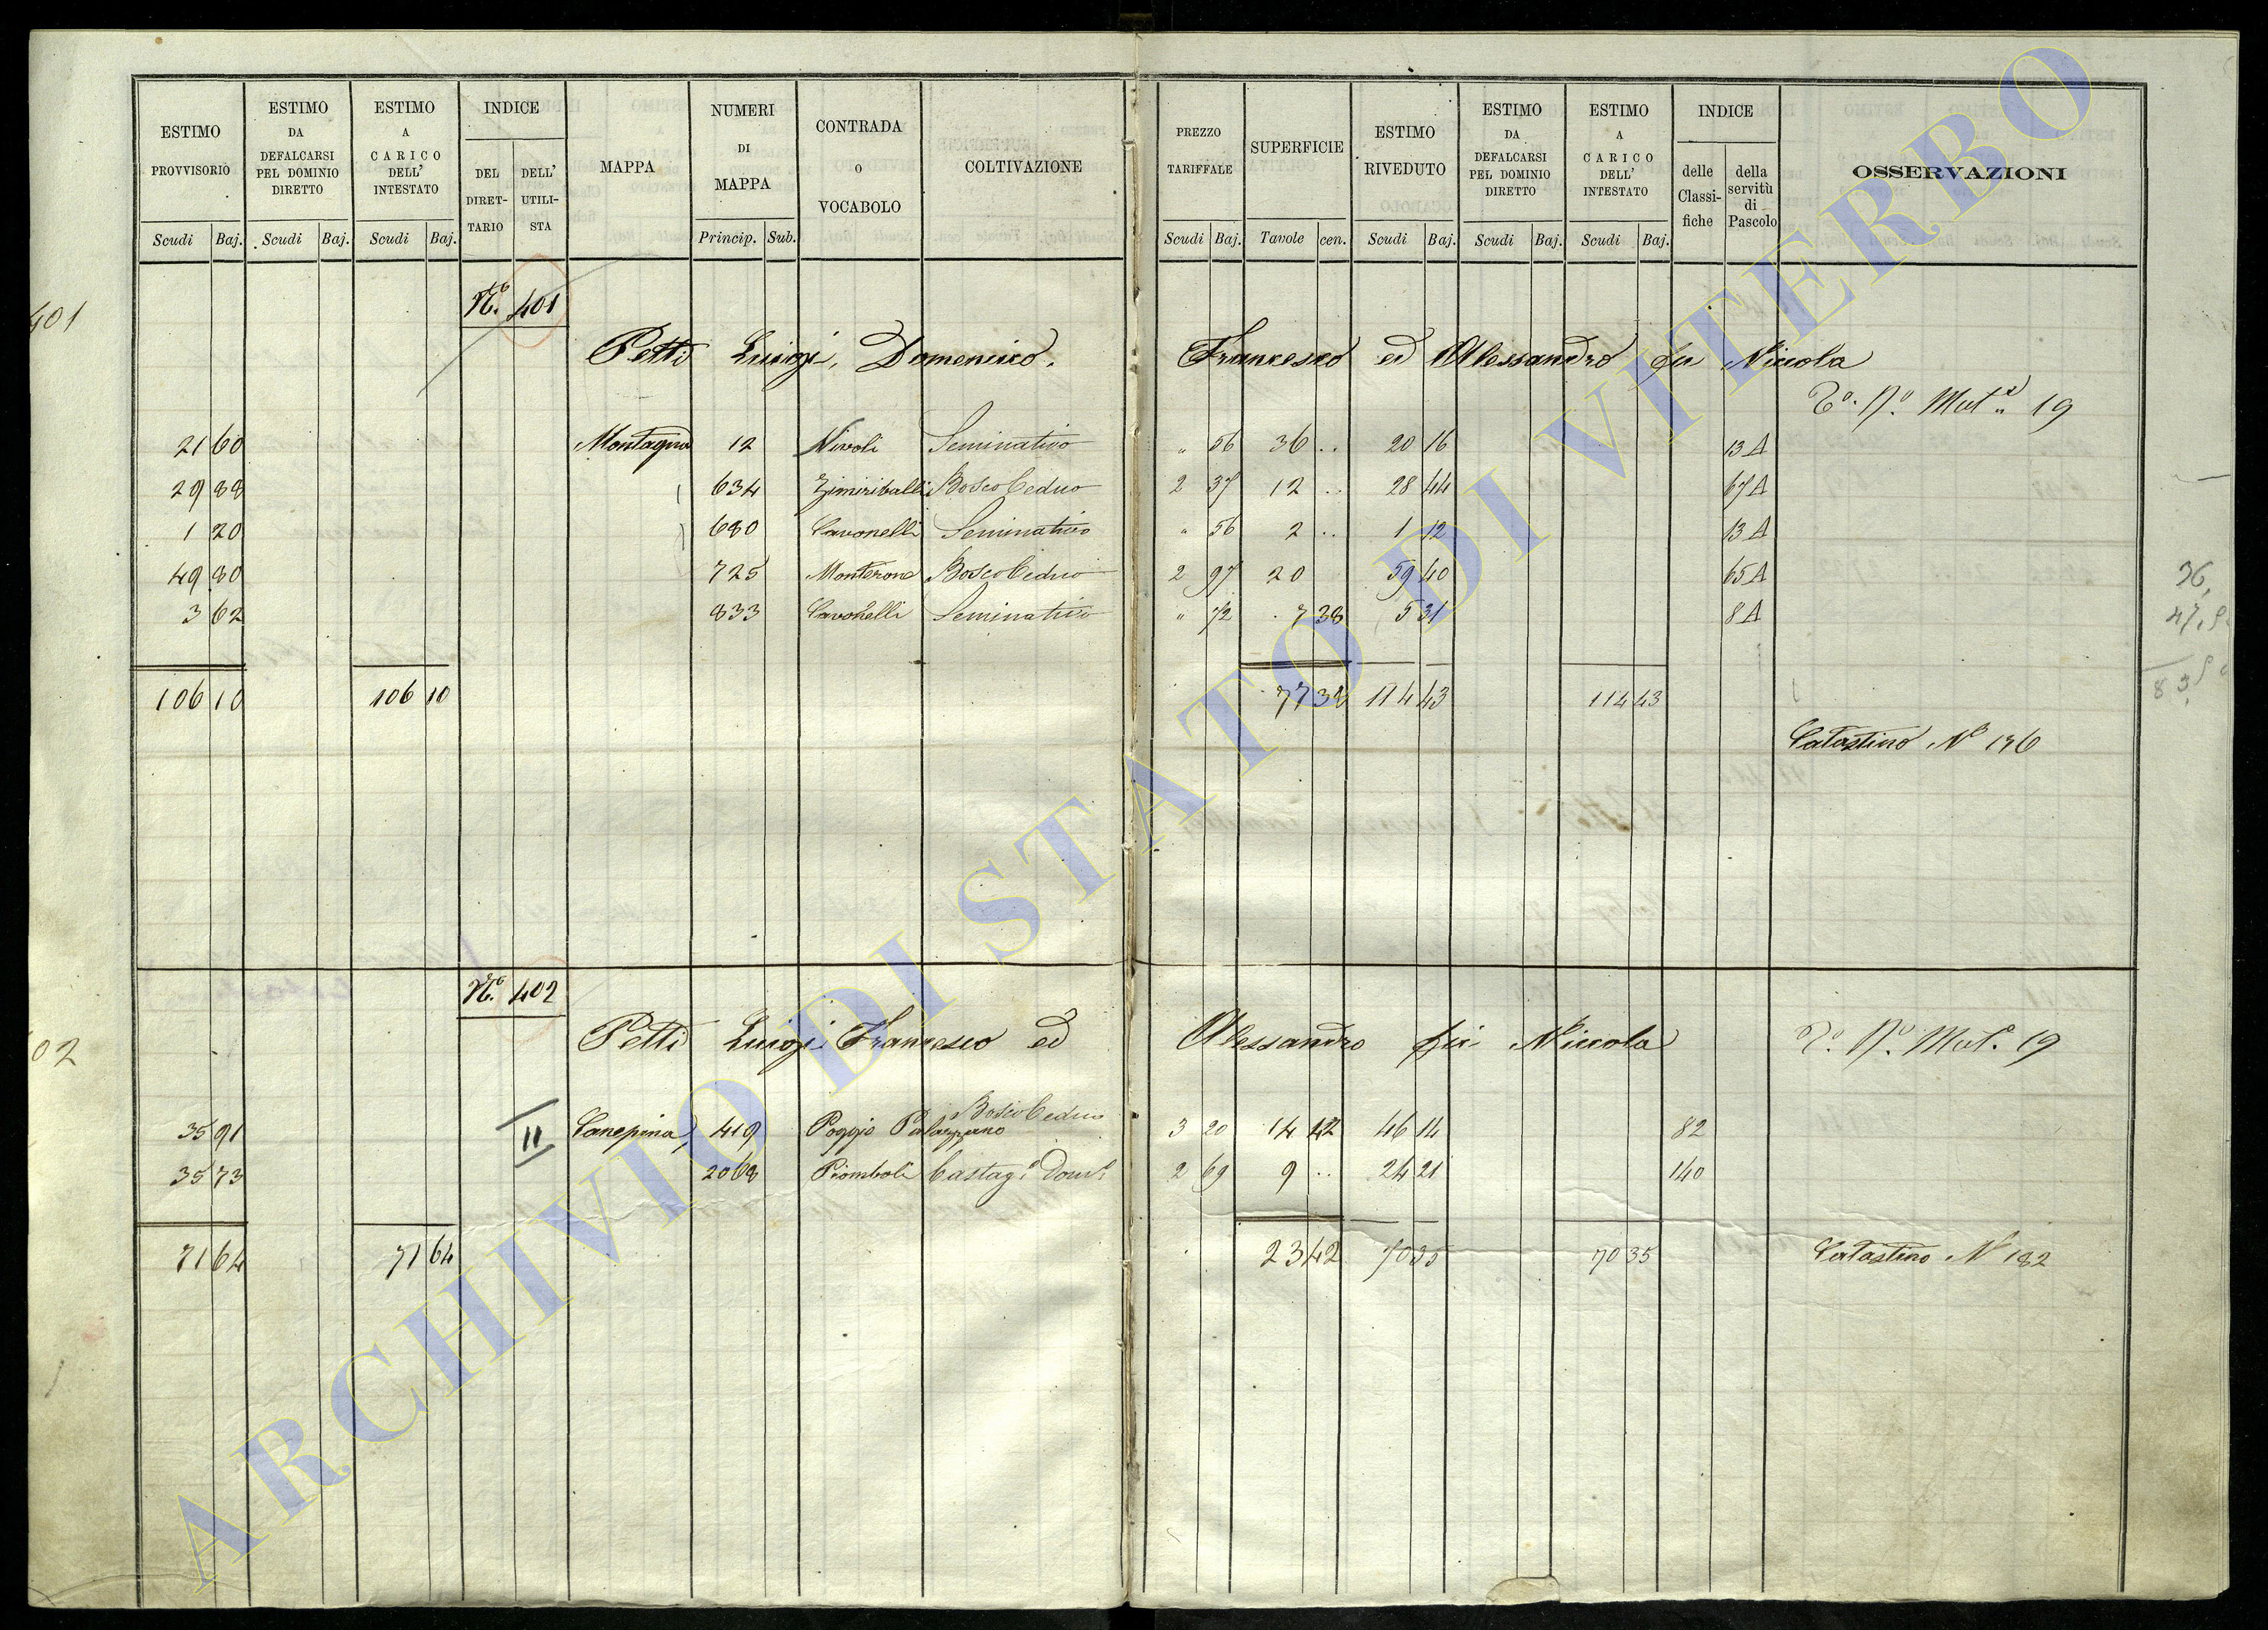 ESTIMO PROVVISORIO | ESTIMO DA DEFALCARSI PEL DOMINIO DIRETTO | ESTIMO A CARICO DELL' INTESTATO | INDICE | MAPPA | NUMERI DI MAPPA | CONTRADA o VOCABOLO | COLTIVAZIONE | PREZZO TARIFFALE | SUPERFICIE | ESTIMO RIVEDUTO | ESTIMO DA DEFALCARSI PEL DOMINIO DIRETTO | ESTIMO A CARICO DELL' INTESTATO | INDICE | OSSERVAZIONI
DEL DIRET- TARIO | DELL' UTILI- STA | delle Classi- fiche | della servitù di Pascolo
Scudi | Baj. | Scudi | Baj. | Scudi | Baj. | Princip. | Sub. | Scudi | Baj. | Tavole | cen. | Scudi | Baj. | Scudi | Baj. | Scudi | Baj.
401 | N.o 401
Petti Luigi, Domenico, Francesco ed Alessandro fu Niccola
19
21 60 | Montagna | 12 | Nivoli | Seminativo | " 56 | 36 .. | 20 16 | 13 A
29 88 | 634 | Bosco Ceduo | 2 37 | 12 .. | 28 44 | 67 A
1 20 | 680 | Cavonelli | Seminativo | " 56 | 2 .. | 1 12 | 13 A
49 80 | 725 | Monterone | Bosco Ceduo | 2 97 | 20 | 59 40 | 65 A
3 62 | 833 | Cavonelli | Seminativo | " 72 | 7 38 | 5 31 | 8 A
106 10 | 106 10 | 77 38 | 114 43 | 114 43
36,
Catastino N.o 196
02 | N.o 402
Petti Luigi Francesco ed Alessandro fu Niccola
19
35 91 | II | Canepina | 419 | Poggio Palazzano | Bosco Ceduo | 3 20 | 14 42 | 46 14 | 82
35 73 | 2068 | Piomboli | Castag.o Dom.o | 2 69 | 9 .. | 24 21 | 140
71 64 | 71 64 | 23 42 | 70 35 | 70 35 | Catastino N 182
ARCHIVIO DI STATO DI VITERBO